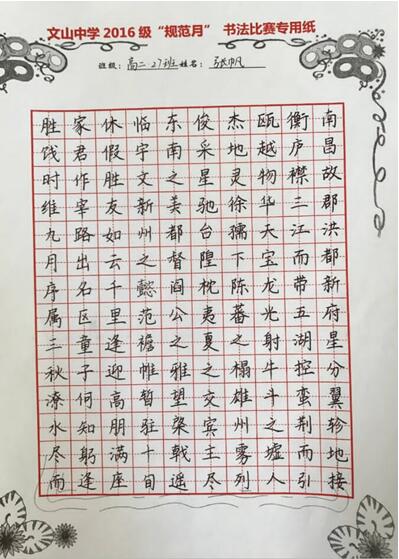 文山中学2016级“规范月” 书法比赛专用纸
班级：高二27班姓名：张帆
南昌故郡洪都新府星分翼轸地接
衡庐襟三江而带五湖控蛮荆而引
瓯越物华天宝龙光射牛斗之墟人
杰地灵徐孺下陈蕃之榻雄州雾列
俊采星驰台隍枕夷夏之交宾主尽
东南之美都督阎公之雅望染戟遥
临宇文新州之懿范襜帷暂驻十旬
休假胜友如云千里逢迎高朋满座
家君作宰路出名区童子何知躬逢
胜饯时维九月序属三秋潦水尽而